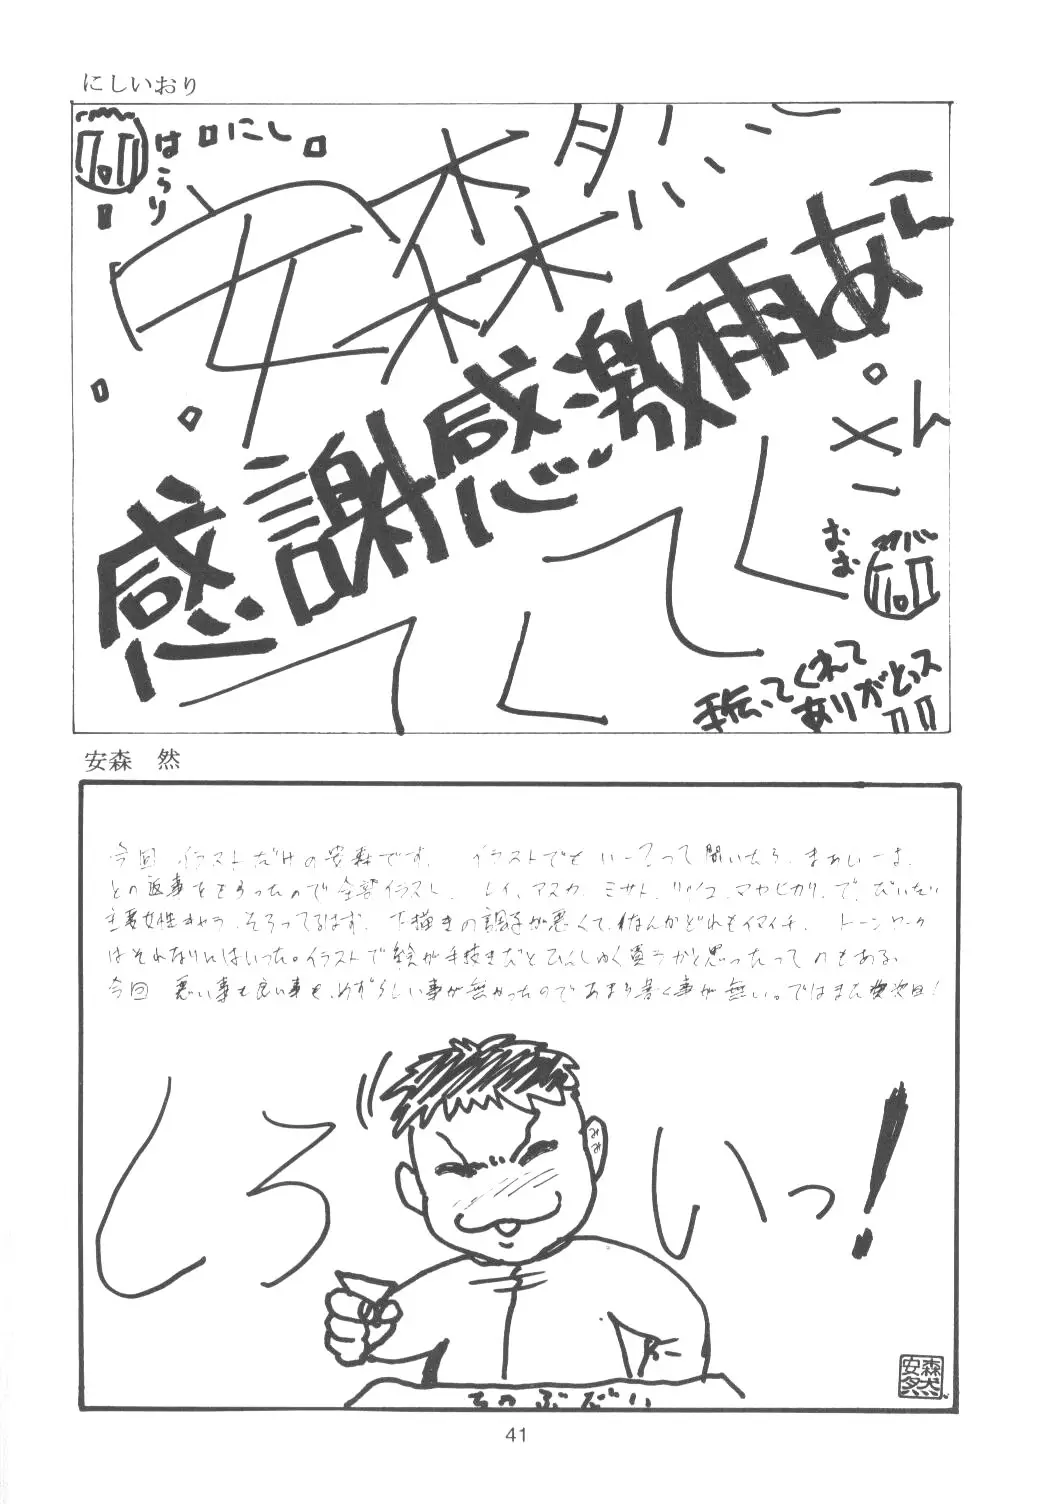 にしいおり
にし
はらり
安森然
感謝感激雨あ
めー
おお
手伝ってくれて
ありがとっス
安森 然
今回イラストだけの安森です。イラストでもいーってって聞いたら、まあいーよ、
との返事をもらったので全部イラスト。レイ、アスカ、ミサト、リツコ、マヤ、ヒカリ、で、だいたい
主要女性キャラ、そろってるはず。下描きの調子が悪くて、なんかどれもイマイチ。トーンワーク
はそれなりにはいった。イラストで絵が手抜きだとひんしゅく買うかと思ったってのもある。
今回 悪い事も良い事も、めずらしい事が無かったのであまり書く事が無い。ではまた次回!
しろいっ!
みみ
ちゃぶだい
安森然
41